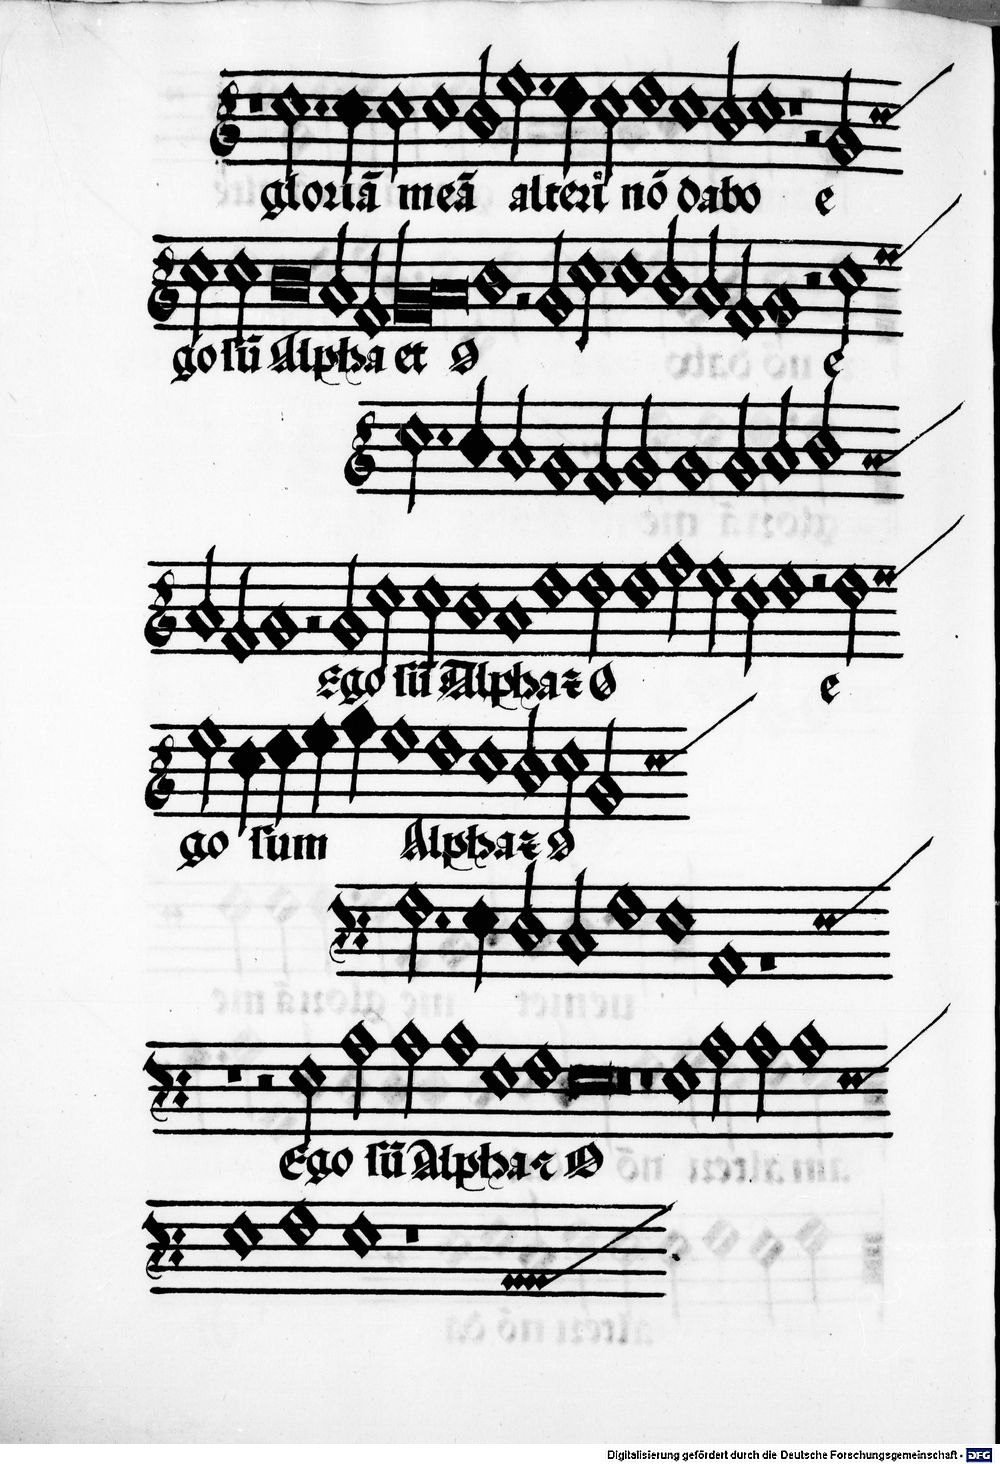 gloriā meā alteri nō dabo e
go sū Alpha et O e
Ego sū Alpha ꝛ O e
go sum Alpha ꝛ O
Ego sū Alpha ꝛ O
Digitalisierung gefördert durch die Deutsche Forschungsgemeinschaft - DFG